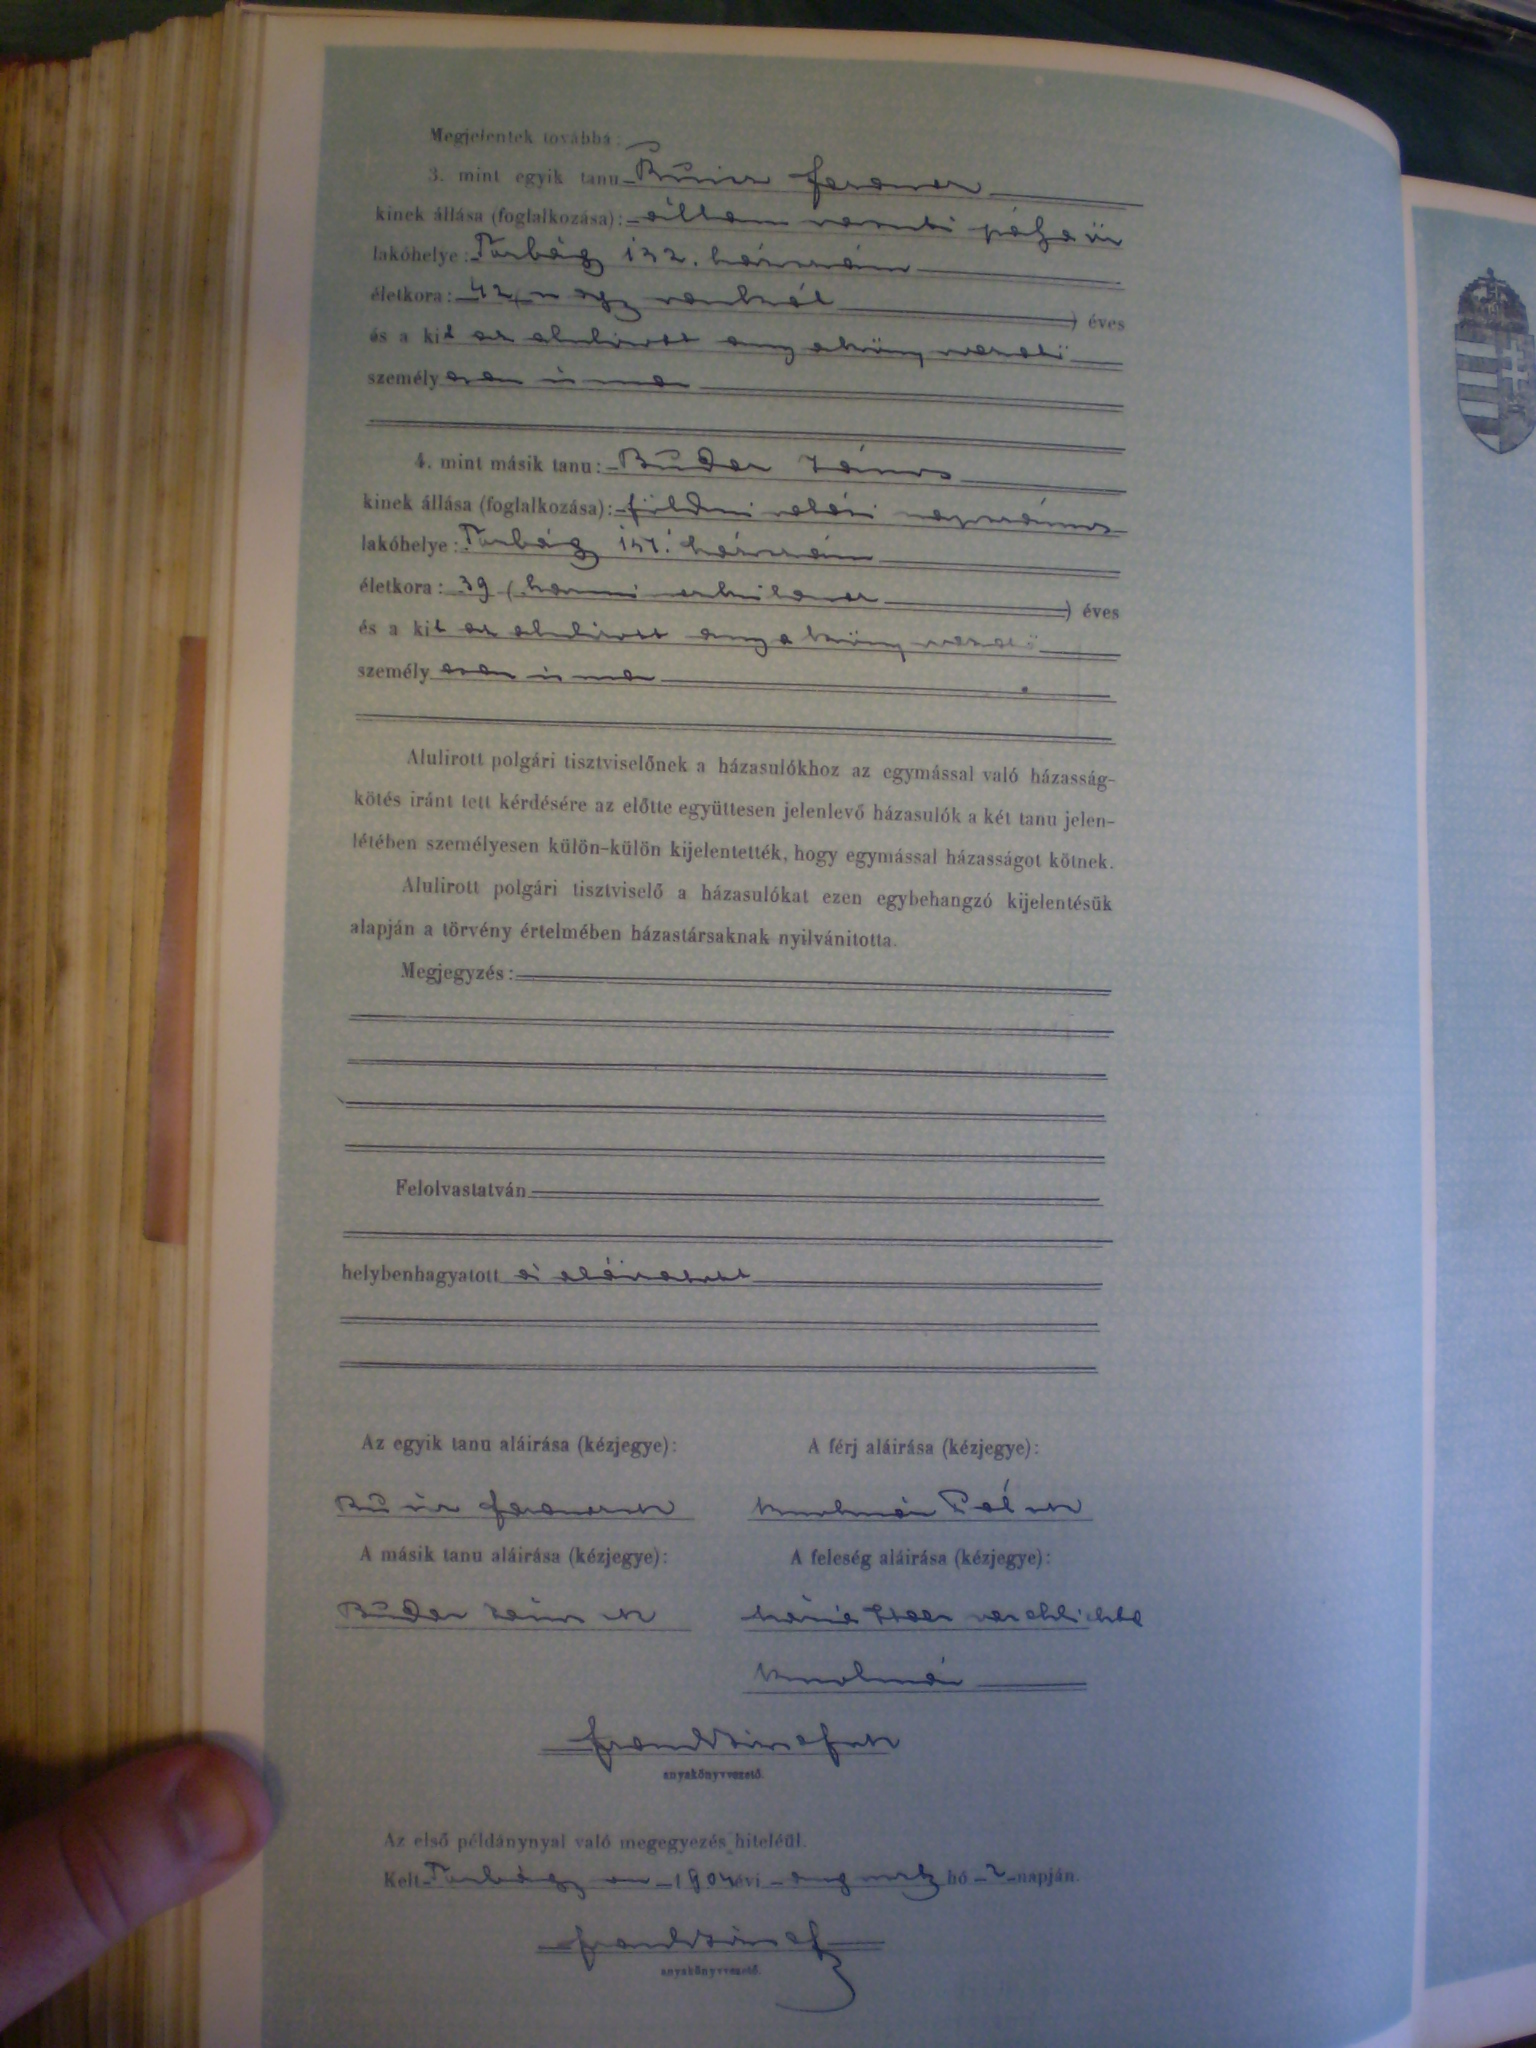 Megjelentek továbbá:
3. mint egyik tanu Ferencz
kinek állása (foglalkozása): állam vasuti pályaőr
lakóhelye: Torbágy 132. házszám
életkora: 42 ( ) éves
és a kit az alulirott anyakönyvvezető
személyesen ismer
4. mint másik tanu: Buder János
kinek állása (foglalkozása): földmivelési napszámos
lakóhelye: Torbágy házszám
életkora: 39 (harminczkilencz) éves
és a kit az alulirott anyakönyvvezető
személyesen ismer
Alulirott polgári tisztviselőnek a házasulókhoz az egymással való házasság-
kötés iránt tett kérdésére az előtte együttesen jelenlevő házasulók a két tanu jelen-
létében személyesen külön-külön kijelentették, hogy egymással házasságot kötnek.
Alulirott polgári tisztviselő a házasulókat ezen egybehangzó kijelentésük
alapján a törvény értelmében házastársaknak nyilvánitotta.
Megjegyzés:
Felolvastatván
helybenhagyatott és aláiratott
Az egyik tanu aláirása (kézjegye):
A férj aláirása (kézjegye):
Ferencz sk
Pál sk
A másik tanu aláirása (kézjegye):
A feleség aláirása (kézjegye):
Buder János sk
Mária verehlichte
anyakönyvvezető.
Az első példánynyal való megegyezés hiteléül.
Kelt Torbágyon 1904 évi augusztus hó 2 napján.
anyakönyvvezető.